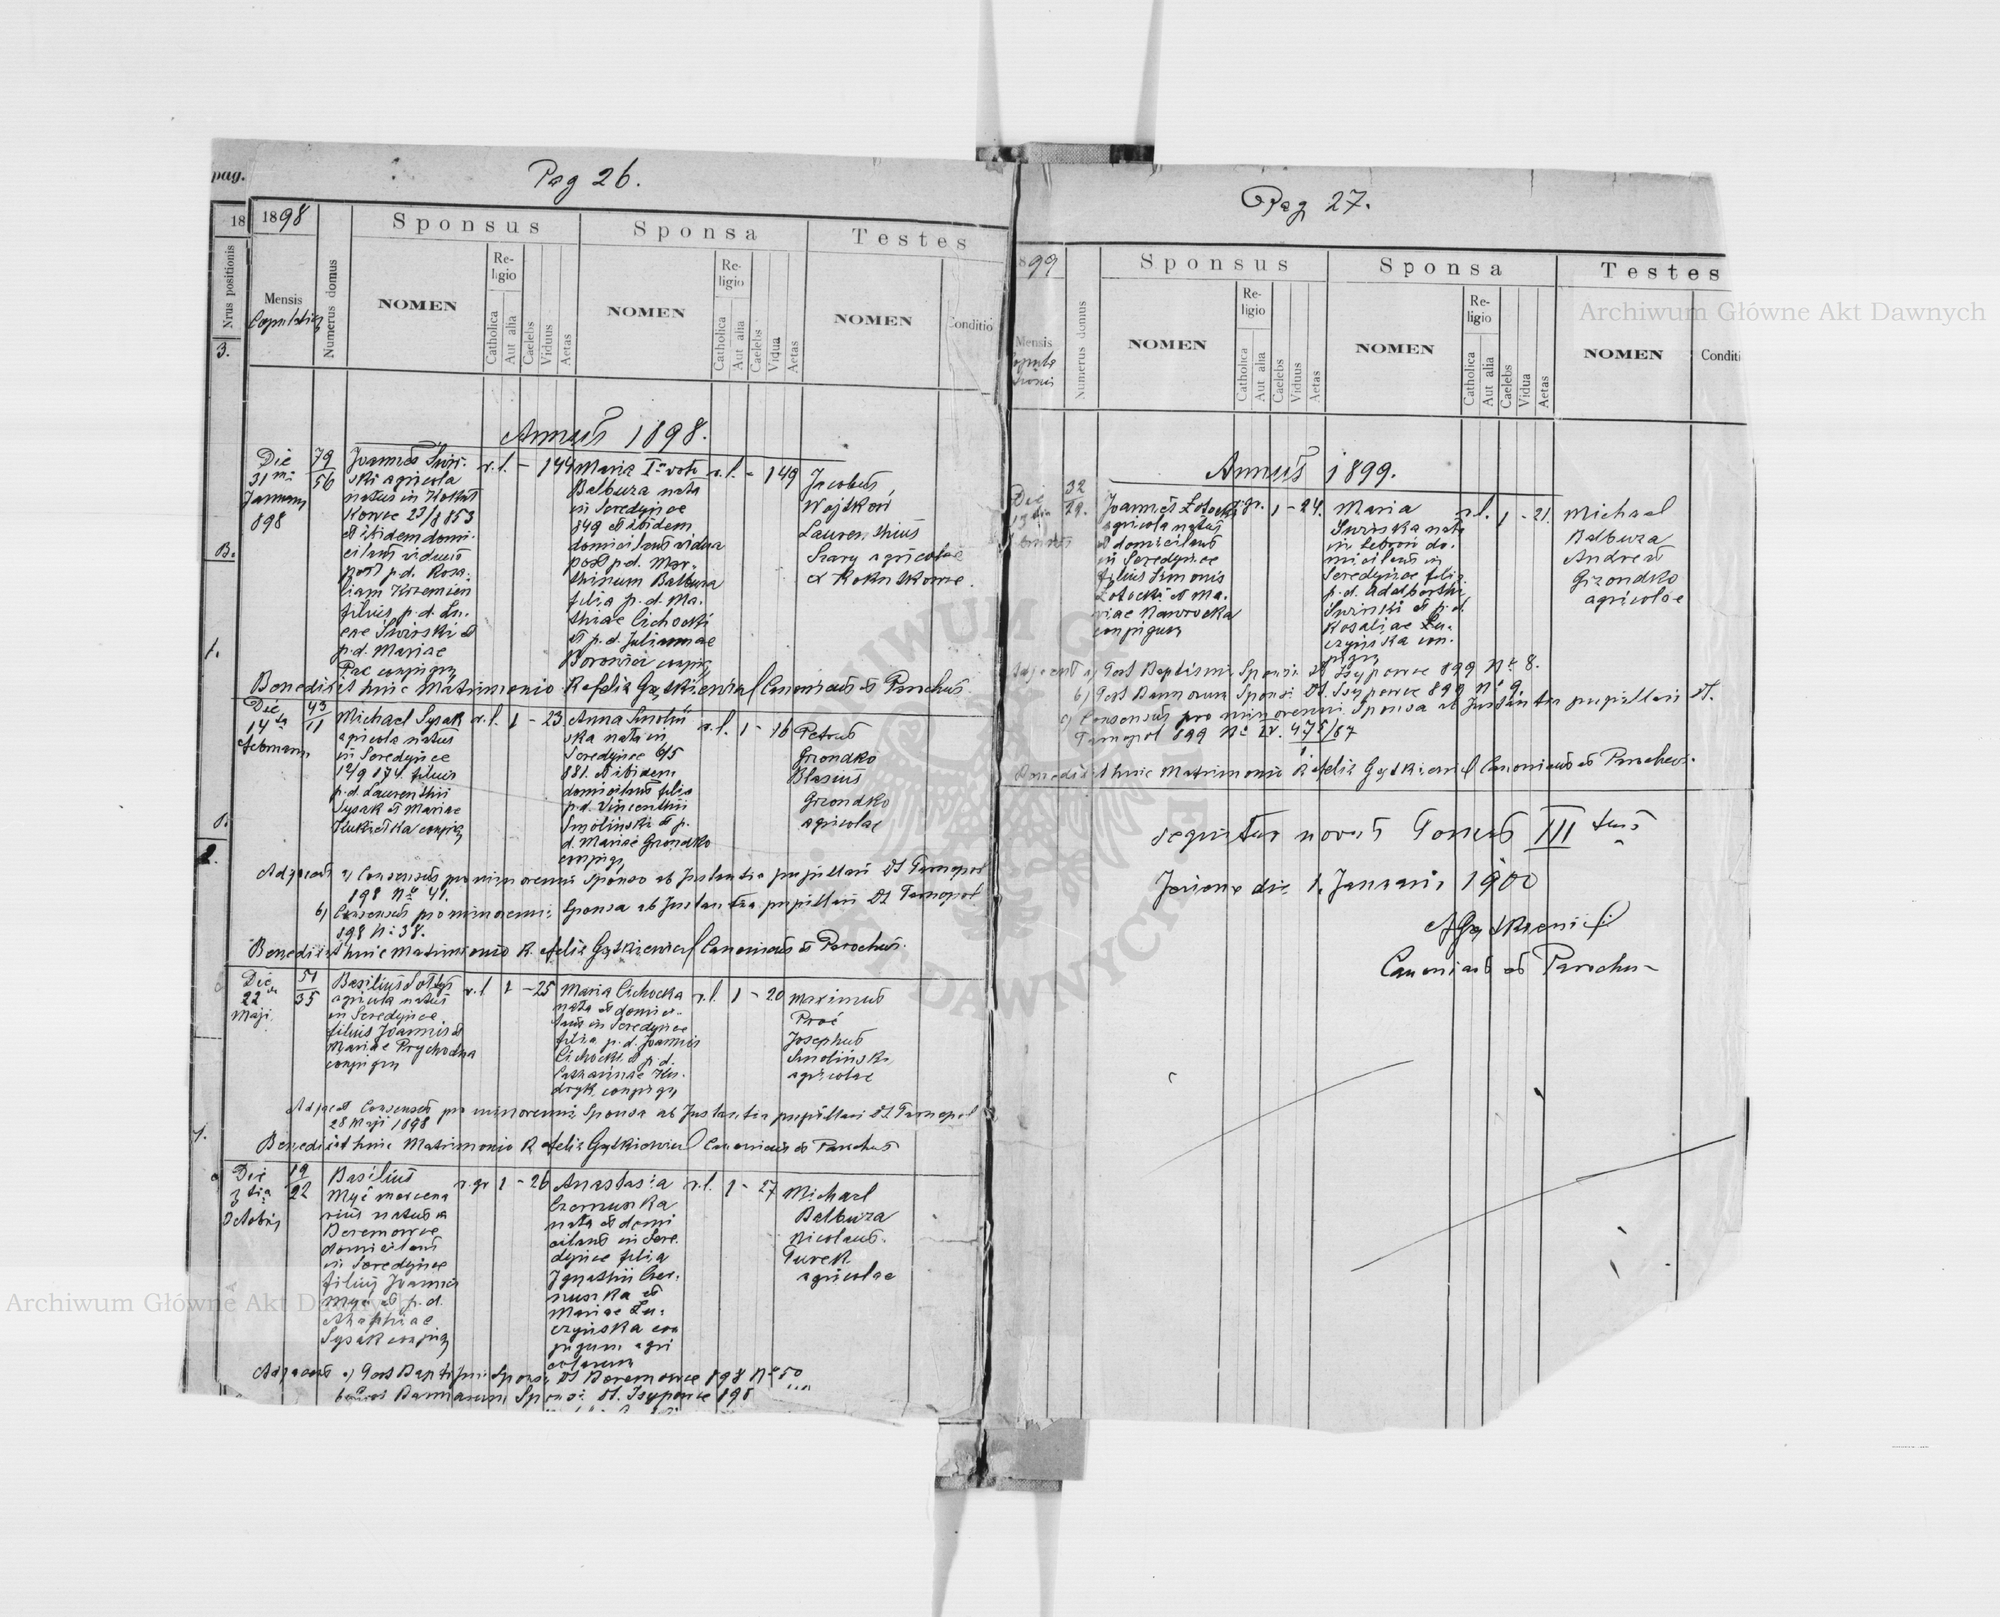 Pag 26.
pag.
18
1898
Sponsus
Sponsa
Testes
Nrus positionis
Mensis
Copulationis
Numerus domus
NOMEN
Re-
ligio
Catholica
Aut alia
Caelebs
Viduus
Aetas
NOMEN
Re-
ligio
Catholica
Aut alia
Caelebs
Vidua
Aetas
NOMEN
Conditio
3.
Annus 1898.
Die
31ma
Januarii
898
79
56
Joannes Świr-
ski agricola
natus in Kokut
kowce 23/8 853
et ibidem domi-
cilans viduus
post p.d. Rosa-
liam Krzemien
filius p.d. Lu-
cae Świrski et
p.d. Mariae
Pac conjugum
r.l. - 1 44
Maria Io voto
Balbuza nata
in Seredynce
849 et ibidem
domicilans vidua
post p.d. Mar-
thinum Balbuza
filia p.d. Ma-
thiae Cichocki
et p.d. Juliannae
conjug.
r.l. - 1 49
Jacobus
Wojtków
Lauren thius
Szary agricolae
Benedixit huic Matrimonio Rafelis Gątkiewicz Canonicus et Parochus
Die
14ta
Februarii
43
11
Michael Sysak
agricola natus
in Seredynce
12/9 874 filius
p.d. Laurenthii
Sysak et Mariae
conjug
r.l. 1 - 23
Anna Smoliń
ska nata in
Seredynce 6/5
881. et ibidem
domicilans filia
p.d. Vincenthii
Smolinski et p.
d. Mariae Grzondko
conjug
r.l. 1 - 16
Petrus
Grzondko
Blasius
Grzondko
agricolae
Adjacent a) Consensus pro minorenni Sponso ab Instantia pupillari Dt Tarnopol
198 No 41.
b) Consensus pro minorenni Sponsa ab Instantia pupillari Dt Tarnopol
898 N: 38.
Benedixit huic Matrimonio Rafelis Gątkiewicz Canonicus et Parochus.
Die
22
Maji
51
35
Basilius Sołtys
agricola natus
in Seredynce
filius Joannis et
Mariae Prychodna
conjugum
r.l 1 - 25
Maria Cichocka
nata et domici-
lans in Seredynce
filia p.d. Joannis
Cichocki et p.d.
Catharinae Ku-
dryk conjugum
r.l. 1 - 20
Maximus
Proć
Josephus
Smoliński
agricolae
Adjacet Consensus pro minorenni Sponsa ab Instantia pupillari Dt Tarnopol
28 Maji 1898
Benedixit huic Matrimonio Rafelis Gątkiewicz Canonicus et Parochus
Die
3tia
Octobris
19
22
Basilius
Myć mercena
rius natus
Beremowce
domicilans
in Seredynce
filius Joannis
Myć et p.d.
Sysak conjug
r.gr 1 - 26
Anastasia
Czornuska
nata et domi
cilans in Sere-
dynce filia
Ignathii Czer-
nuska et
Mariae Łu-
czyńska con
jugum agri
colarum
r.l. 1 - 27
Michael
Balbuza
Nicolaus
Turek
agricolae
Adjacent a) Test Baptismi Sponsi Dt Beremowce 898 No 50
b) Test Bannorum Sponsi dt. Isypowce 898
Pag 27.
899
Sponsus
Sponsa
Testes
Mensis
Numerus domus
NOMEN
Re-
ligio
Catholica
Aut alia
Caelebs
Viduus
Aetas
NOMEN
Re-
ligio
Catholica
Aut alia
Caelebs
Vidua
Aetas
NOMEN
Conditi
Annus 1899.
Die
13tia
32
29.
Joannes Łotocki
agricola natus
et domicilans
in Seredynce
filius Simonis
Łotocki et Ma-
riae Nawrocka
conjugum
gr. 1 - 24.
Maria
Świrska nata
do-
micilans in
Seredynce filia
p.d. Adalberthi
Świrski et p.d.
Rosaliae Łu-
czyńska con-
jugum
r.l. 1 - 21
Michael
Balbuza
Andreas
Grzondko
agricolae
Adjacent a) Test Baptismi Sponsi dt Isypowce 899 No 8.
b) Test Bannorum Sponsi Dt. Isypowce 899 No 9.
c) Consensus pro minorenni Sponsa ab Instantia pupillari dt.
Tarnopol 899 No IV. 475/87
Benedixit huic Matrimonio Rafelis Gątkiewicz Canonicus et Parochus.
Sequitur novus Tomus III tius
die 1. Januarii 1900
Gątkiewicz
Canonicus et Parochus
Archiwum Główne Akt Dawnych
Archiwum Główne Akt Dawnych
ARCHIWUM GŁÓWNE AKT DAWNYCH